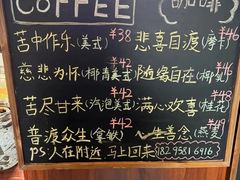 COFFEE 咖啡
苦中作乐(美式)¥38 悲喜自渡(摩卡)¥46
慈悲为怀(椰青美式)¥42 随缘自在(椰
苦尽甘来(汽泡美式)¥42 满心欢喜(桂花)¥48
普渡众生(拿铁)¥42 一生善念(燕麦)¥49
PS:人在附近,马上回来